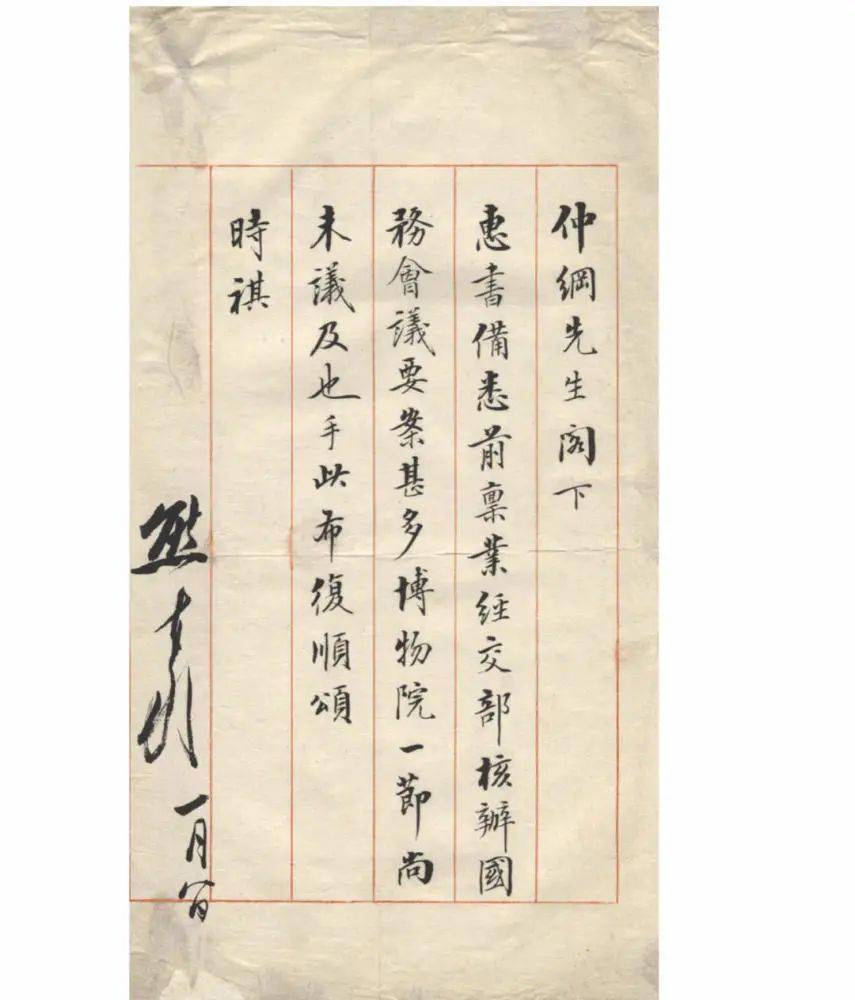 仲綱先生閣下
惠書備悉前稟業經交部核辦國
務會議要案甚多博物院一節尚
未議及也手此布復順頌
時祺
熊希齡 一月